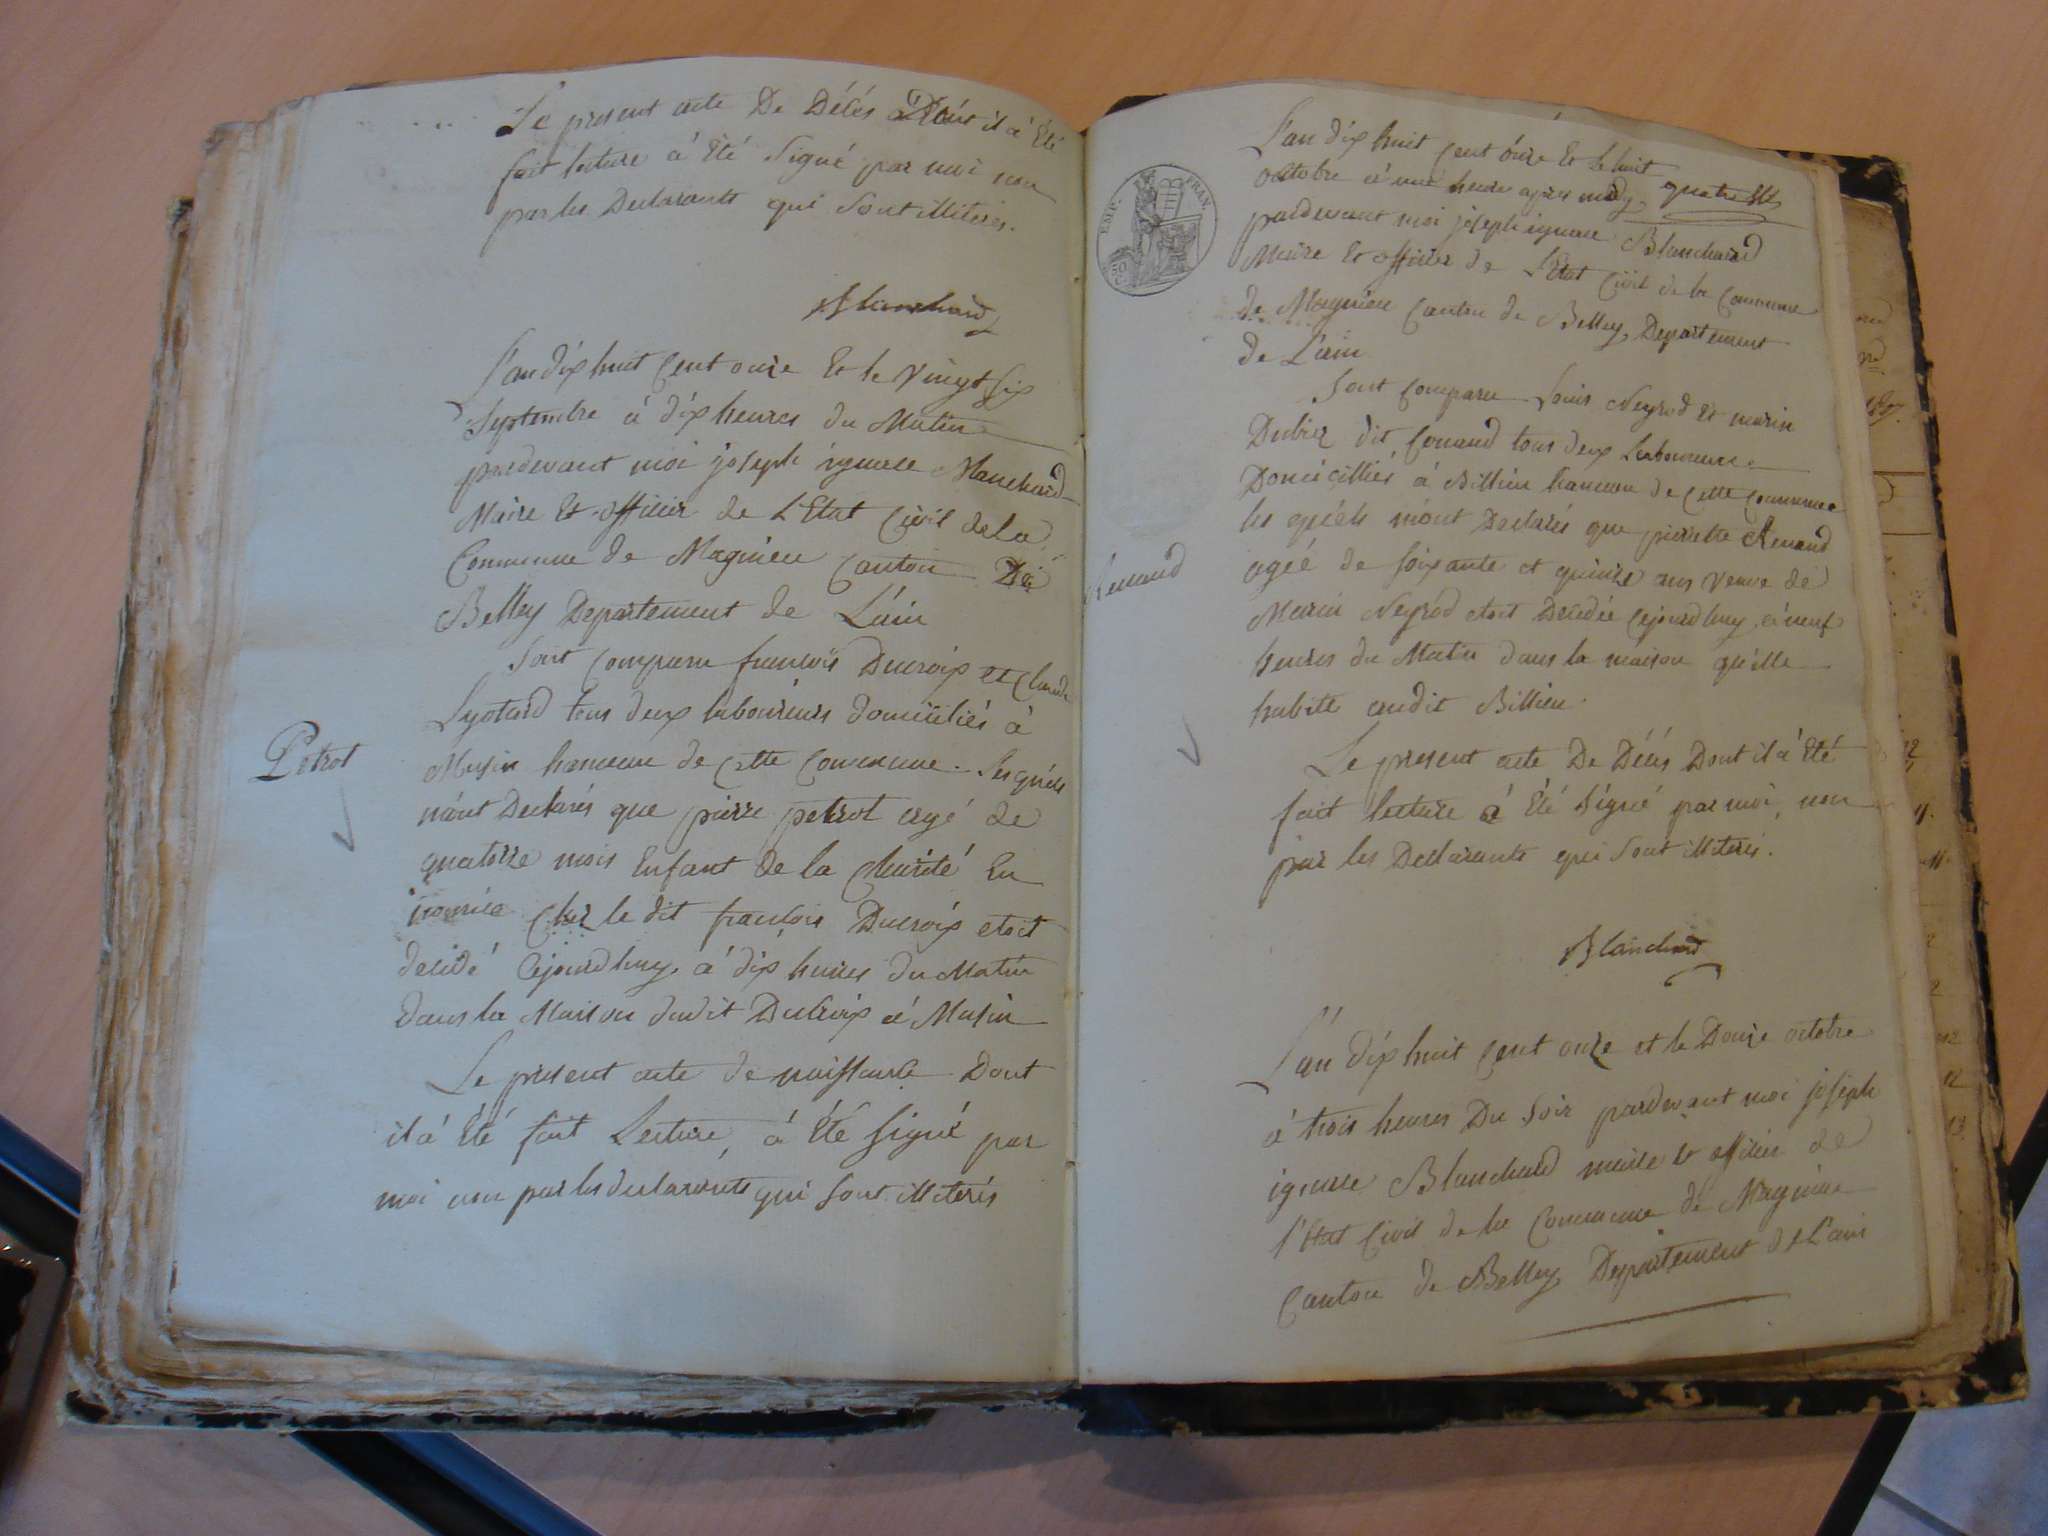 Le present acte De Décés Dont il a Eté
fait lecture á Eté signé par moi non
par les Declarants qui sont illiterés.
Blanchard
L'an dix huit cent onze Et le Vingt six
Septembre á dix heures du Matin
pardevant moi joseph ignace Blanchard
Maire Et officier de L'Etat Civil de La
Commune de Magnieu Canton De
Belley Departement de L'ain
sont comparu francois Ducroix et Claude
Lyotard tous deux laboureurs domiciliés á
Musin hameau de cette commune. Lesquels
m'ont Declarés que pierre petrot agé de
quatorze mois Enfant de la Charité En
nourice chez le dit francois Ducroix etoit
decedé Cejourdhuy á dix heures du Matin
dans la Maison dudit Ducroix á Musin
Le present acte de naissance Dont
il á Eté fait Lecture, á Eté signé par
moi non par les declarants qui sont illiterés
Petrot
EMP. FRAN.
50 C.
L'an dix huit cent onze Et le huit
octobre á une heure apres midy quatre
pardevant moi joseph ignace Blanchard
Maire Et officier de L'Etat Civil de la Commune
de Magnieu Canton de Belley Departement
de L'ain
sont comparu Louis Neyrod Et marin
Dubiez dit Conand tous deux Laboureurs
Domicilliés á Billieu hameau de cette commune
les quéls m'ont Declarés que pierrette Renand
agée de soixante et quinze ans veuve de
Marin Neyrod etoit Decedée Cejourdhuy á neuf
heures du Matin dans la maison qu'elle
habite audit Billieu.
Le present acte De Décés Dont il á Eté
fait lecture á Eté signé par moi, non
par les Declarants qui sont illiterés.
Renand
Blanchard
L'an dix huit cent onze et le Douze octobre
á trois heures Du soir pardevant moi joseph
ignace Blanchard maire Et officier de
l'Etat Civil de la Commune de Magnieu
Canton de Belley Departement de L'ain